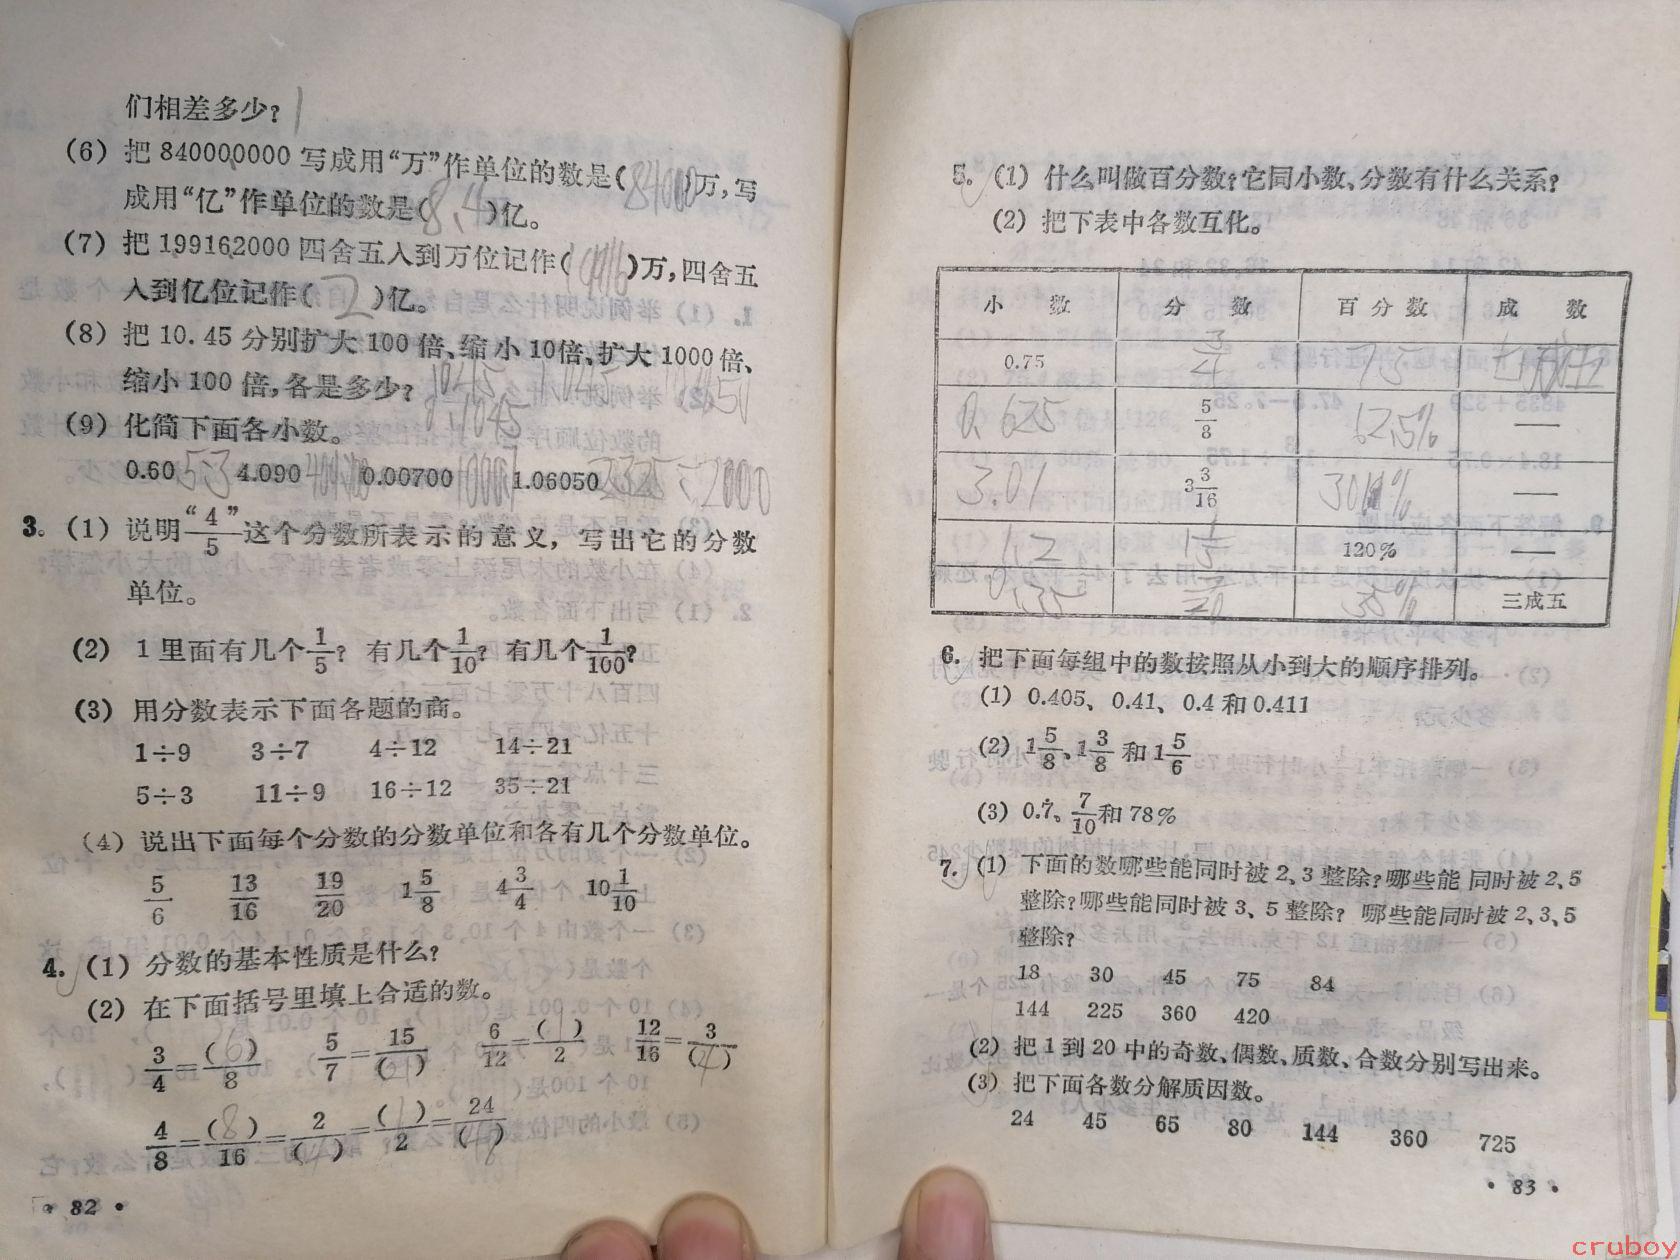 们相差多少？1
(6) 把 840000000 写成用“万”作单位的数是(84000)万，写
成用“亿”作单位的数是(8.4)亿。
(7) 把 199162000 四舍五入到万位记作( )万，四舍五
入到亿位记作(2)亿。
(8) 把 10.45 分别扩大 100 倍、缩小 10倍、扩大 1000 倍、
缩小 100 倍，各是多少？
(9) 化简下面各小数。
0.60 4.090 0.00700 1.06050
3. (1) 说明“4/5”这个分数所表示的意义，写出它的分数
单位。
(2) 1 里面有几个 1/5？有几个 1/10？有几个 1/100？
(3) 用分数表示下面各题的商。
1÷9 3÷7 4÷12 14÷21
5÷3 11÷9 16÷12 35÷21
(4) 说出下面每个分数的分数单位和各有几个分数单位。
5/6 13/16 19/20 1 5/8 4 3/4 10 1/10
4. (1) 分数的基本性质是什么？
(2) 在下面括号里填上合适的数。
3/4=(6)/8 5/7=15/(21) 6/12=(1)/2 12/16=3/(4)
4/8=(8)/16=2/(4)=(1)/2=24/(48)
·82·
5. (1) 什么叫做百分数？它同小数、分数有什么关系？
(2) 把下表中各数互化。
小 数 分 数 百 分 数 成 数
0.75 3/4 75
0.625 5/8 62.5% —
3.01 3 3/16 301% —
1.2 1 1/5 120% —
0.35 7/20 35% 三成五
6. 把下面每组中的数按照从小到大的顺序排列。
(1) 0.405、0.41、0.4 和 0.411
(2) 1 5/8、1 3/8 和 1 5/6
(3) 0.7、7/10 和 78%
7. (1) 下面的数哪些能同时被 2、3 整除？哪些能同时被 2、5
整除？哪些能同时被 3、5 整除？哪些能同时被 2、3、5
整除？
18 30 45 75 84
144 225 360 420
(2) 把 1 到 20 中的奇数、偶数、质数、合数分别写出来。
(3) 把下面各数分解质因数。
24 45 65 80 144 360 725
·83·
cruboy